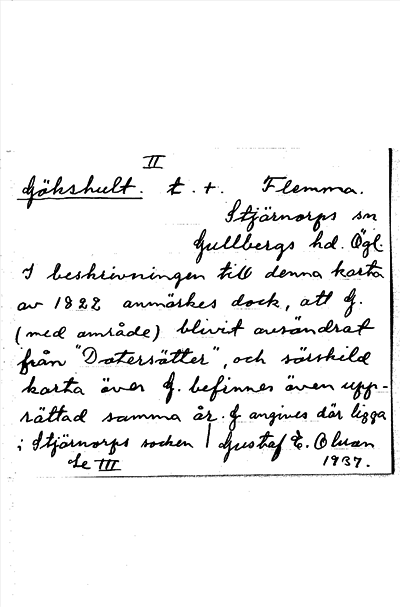 II
Gökshult. t. t. Flemma.
Stjärnorps sn
Gullbergs hd. Ögl.
I beskrivningen till denna karta
av 1822 anmärkes dock, att G.
(med område) blivit avsöndrat
från "Datersätter", och särskild
karta över G. befinnes även upp-
rättad samma år. G angives där ligga
i Stjärnorps socken / Gustaf E. Olsson
Se III 1937.